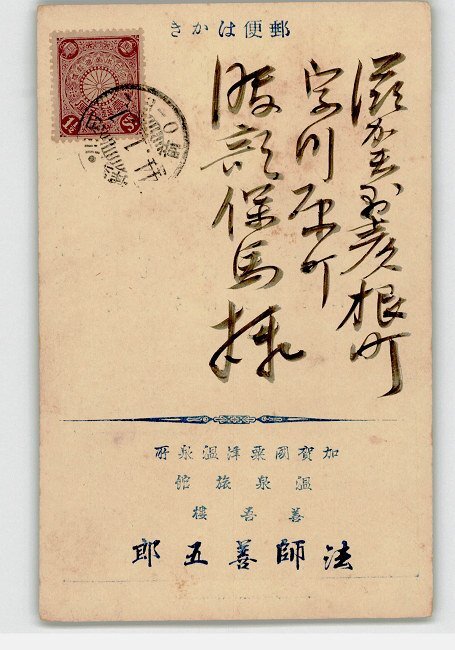 郵便はかき
滋賀縣彦根町
字川原町
服部保馬様
加賀國粟津温泉所
温泉旅館
善吾樓
法師善五郎